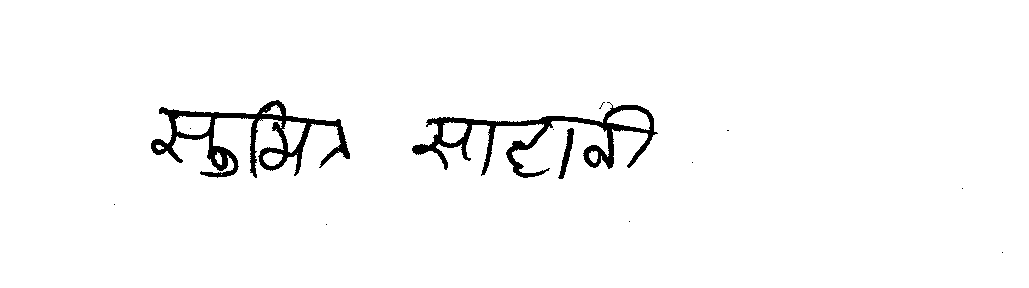 सुमित्र साहानी